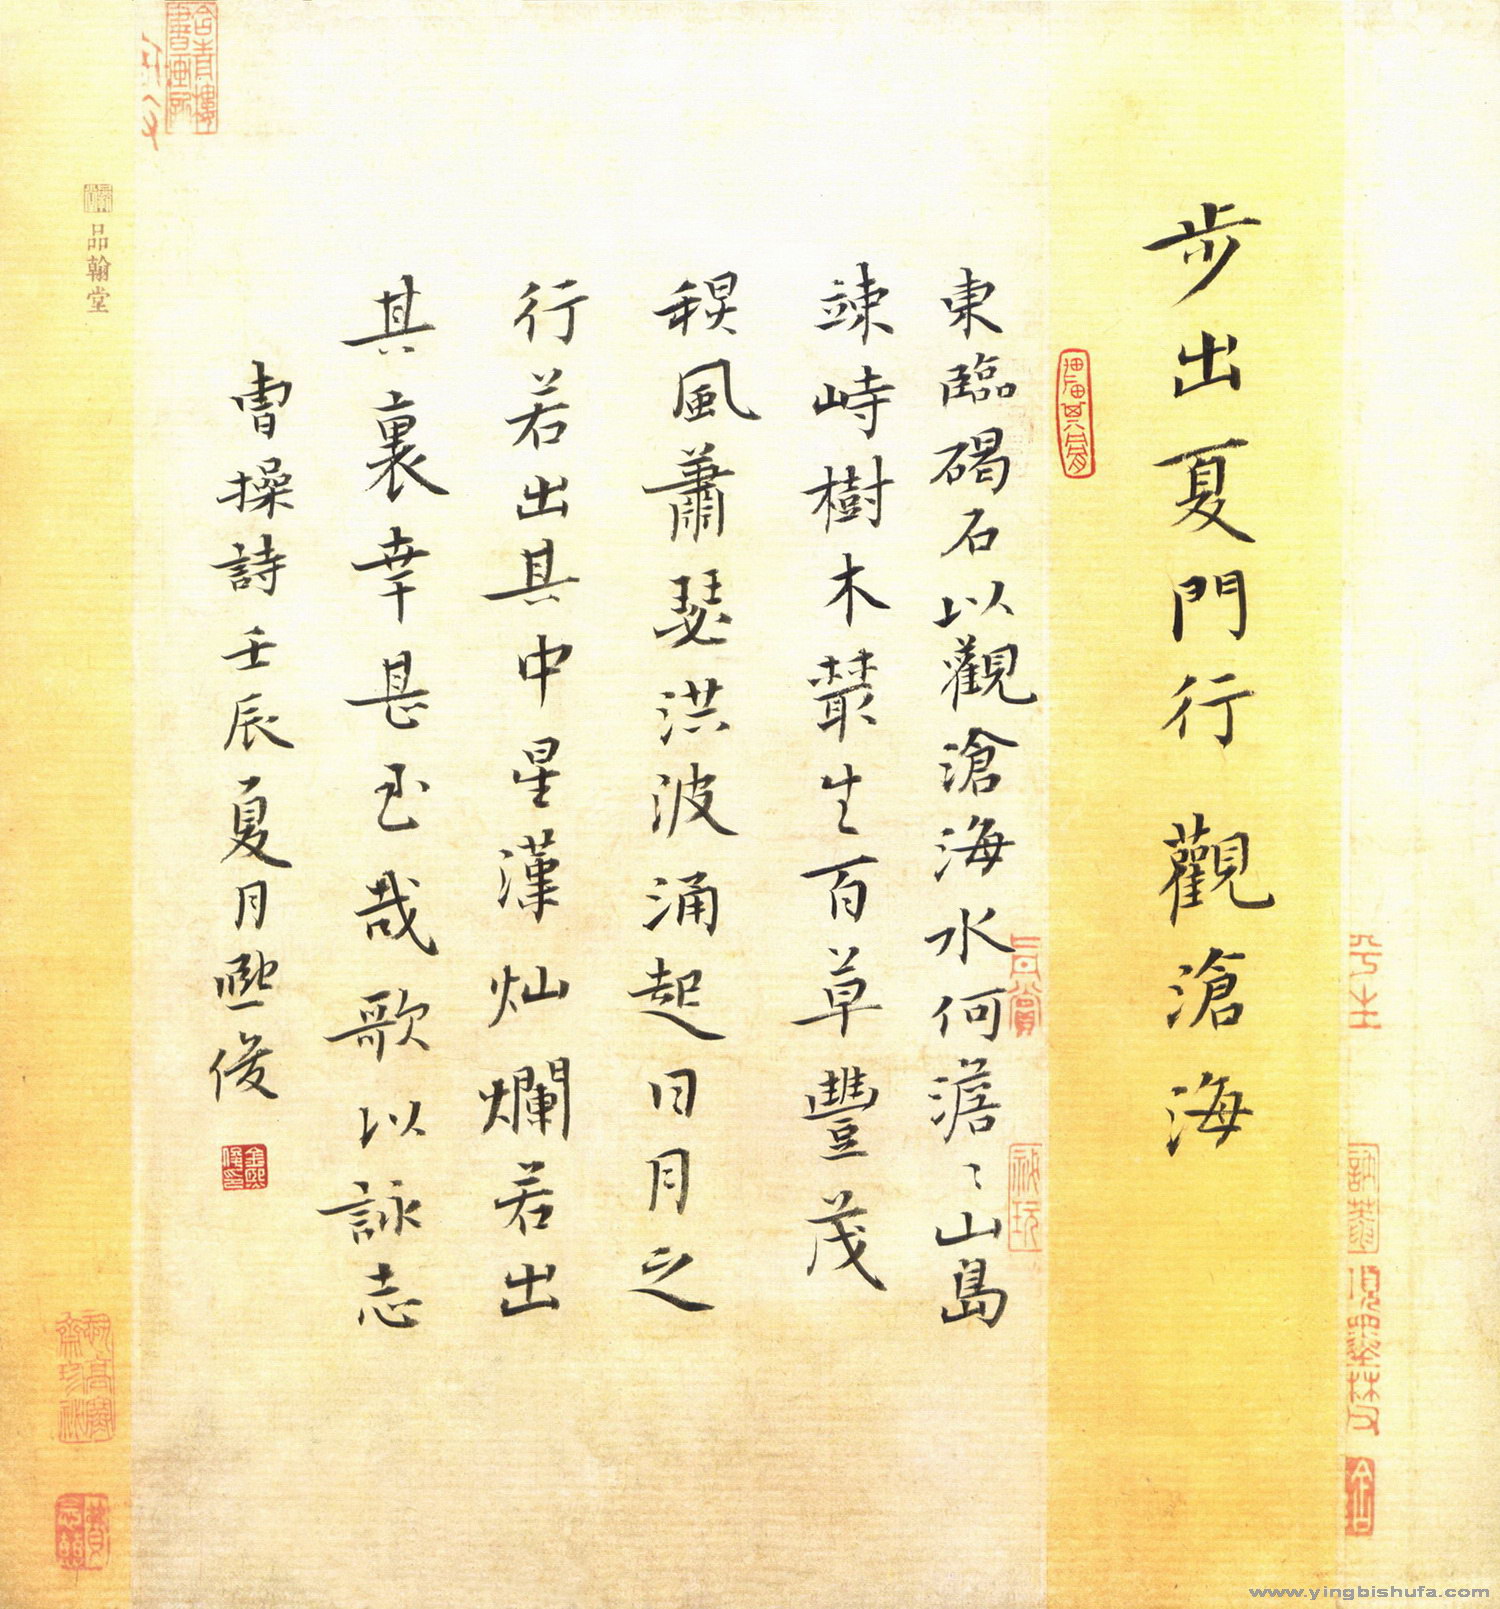 步出夏門行 觀滄海
東臨碣石以觀滄海水何澹〻山島
竦峙樹木叢生百草豐茂
秋風蕭瑟洪波涌起日月之
行若出其中星漢灿爛若出
其裏幸甚至哉歌以詠志
曹操詩壬辰夏月熙俊
金熙俊印
品翰堂
www.yingbishufa.com